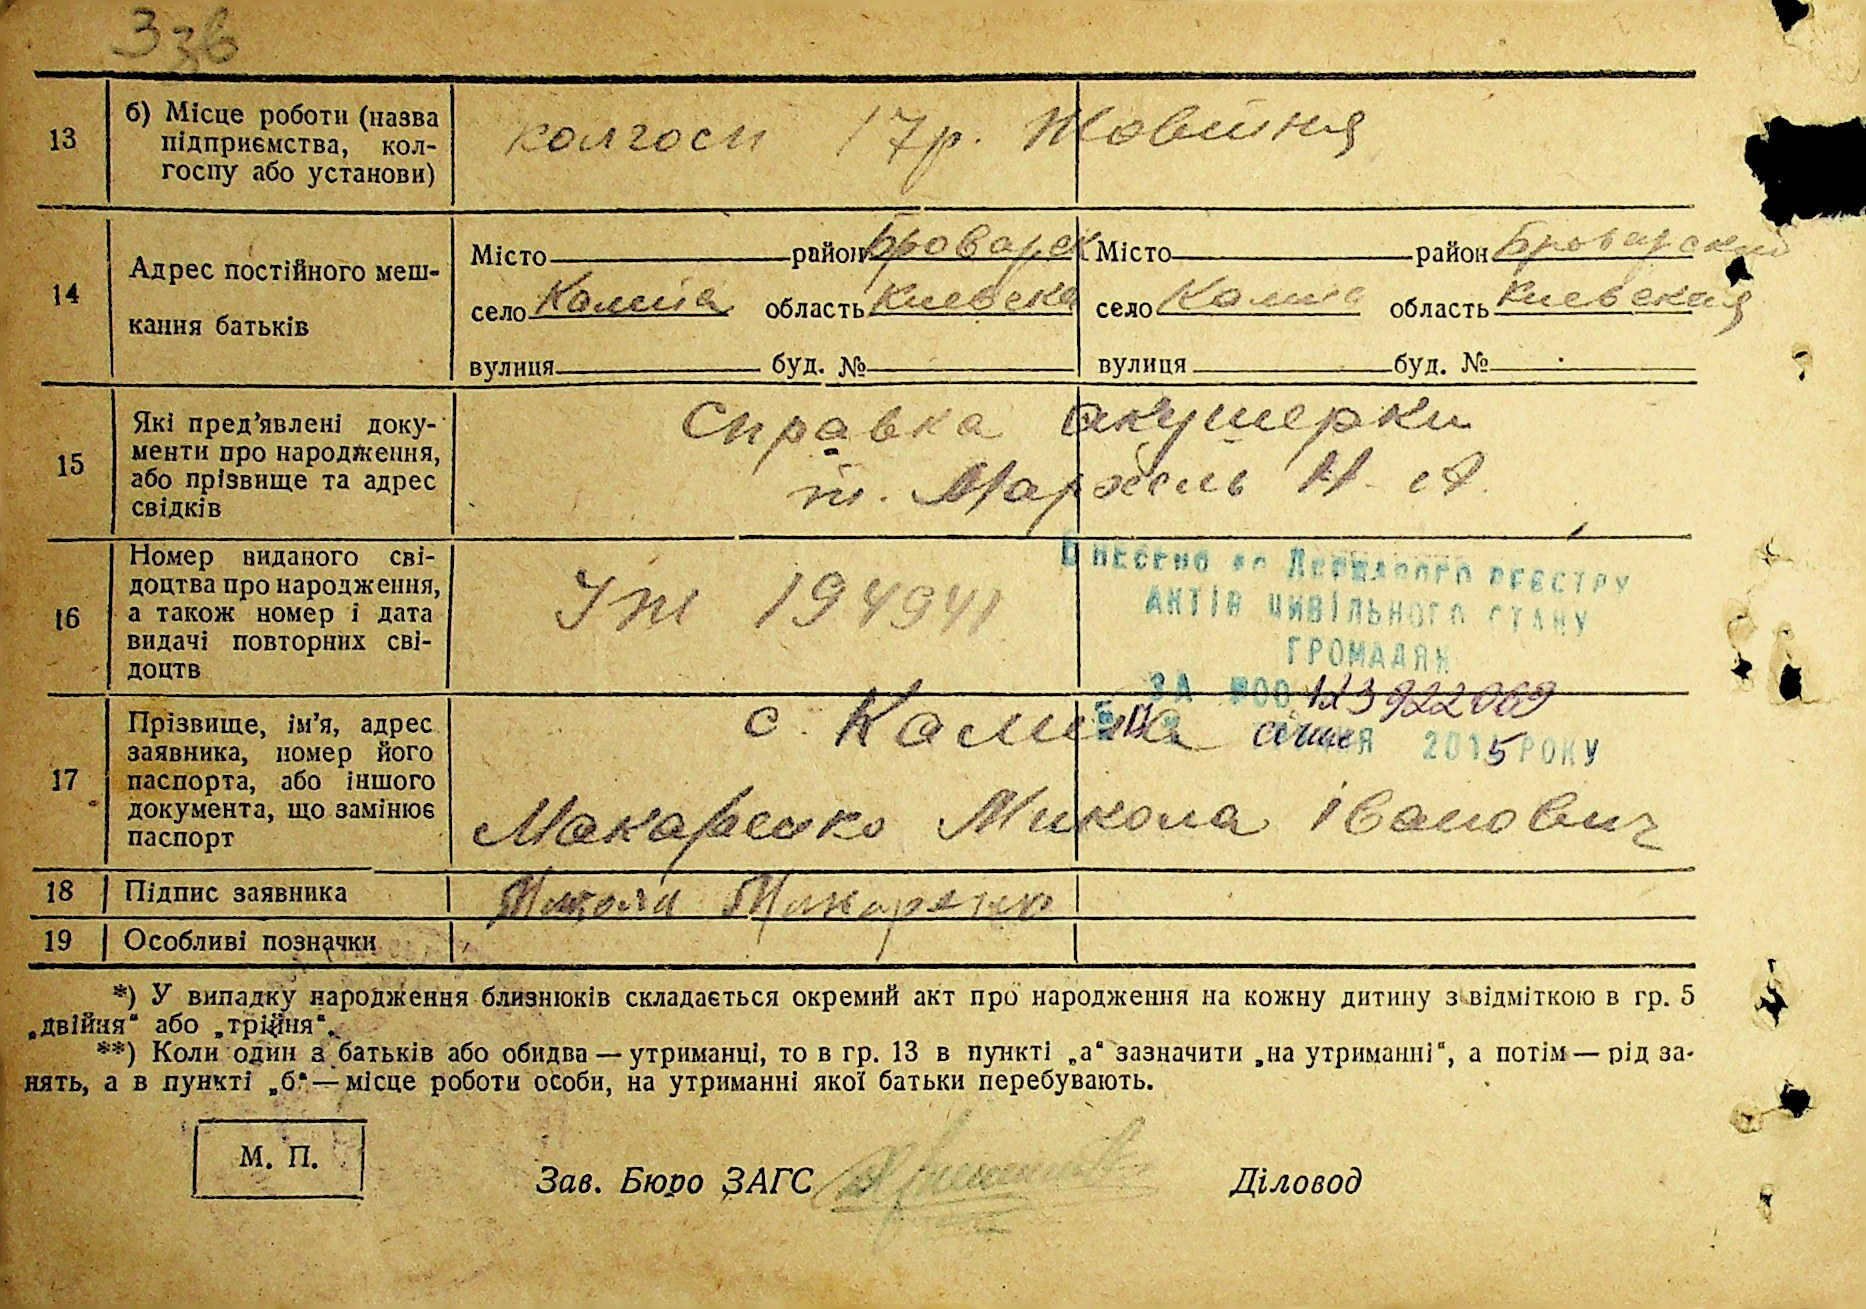 13
б) Місце роботи (назва
підприємства, кол-
госпу або установи)
колгосп 17 р. Жовтня
14
Адрес постійного меш-
кання батьків
Місто район Броварск Місто район Броварский
село Калита область Киевска село Калита область Киевская
вулиця буд. № вулиця буд. №
15
Які пред'явлені доку-
менти про народження,
або прізвище та адрес
свідків
Справка акушерки
т. Н. А.
16
Номер виданого сві-
доцтва про народження,
а також номер і дата
видачі повторних сві-
доцтв
УЖ 194941
ВНЕСЕНО ДО ДЕРЖАВНОГО РЕЄСТРУ
АКТІВ ЦИВІЛЬНОГО СТАНУ
ГРОМАДЯН
ЗА №00123922069
січня 2015 РОКУ
17
Прізвище, ім'я, адрес
заявника, номер його
паспорта, або іншого
документа, що замінює
паспорт
с. Калита
Макаренко Микола Іванович
18
Підпис заявника
Микола Макаренко
19
Особливі позначки
*) У випадку народження близнюків складається окремий акт про народження на кожну дитину з відміткою в гр. 5
„двійня“ або „трійня“.
**) Коли один з батьків або обидва — утриманці, то в гр. 13 в пункті „а“ зазначити „на утриманні“, а потім — рід за-
нять, а в пункті „б“ — місце роботи особи, на утриманні якої батьки перебувають.
М. П.
Зав. Бюро ЗАГС
Діловод